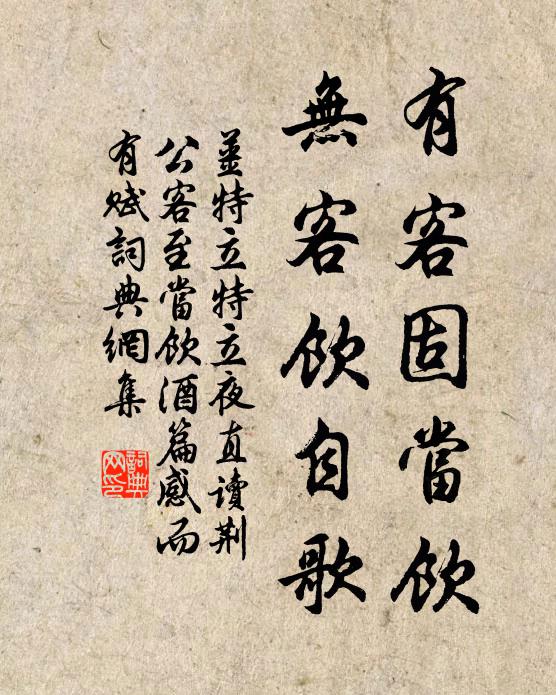 有客固當飲
無客飲自歌
姜特立特立夜直讀荆
公客至當飲酒篇感而
有賦詞典網集
詞典
网印